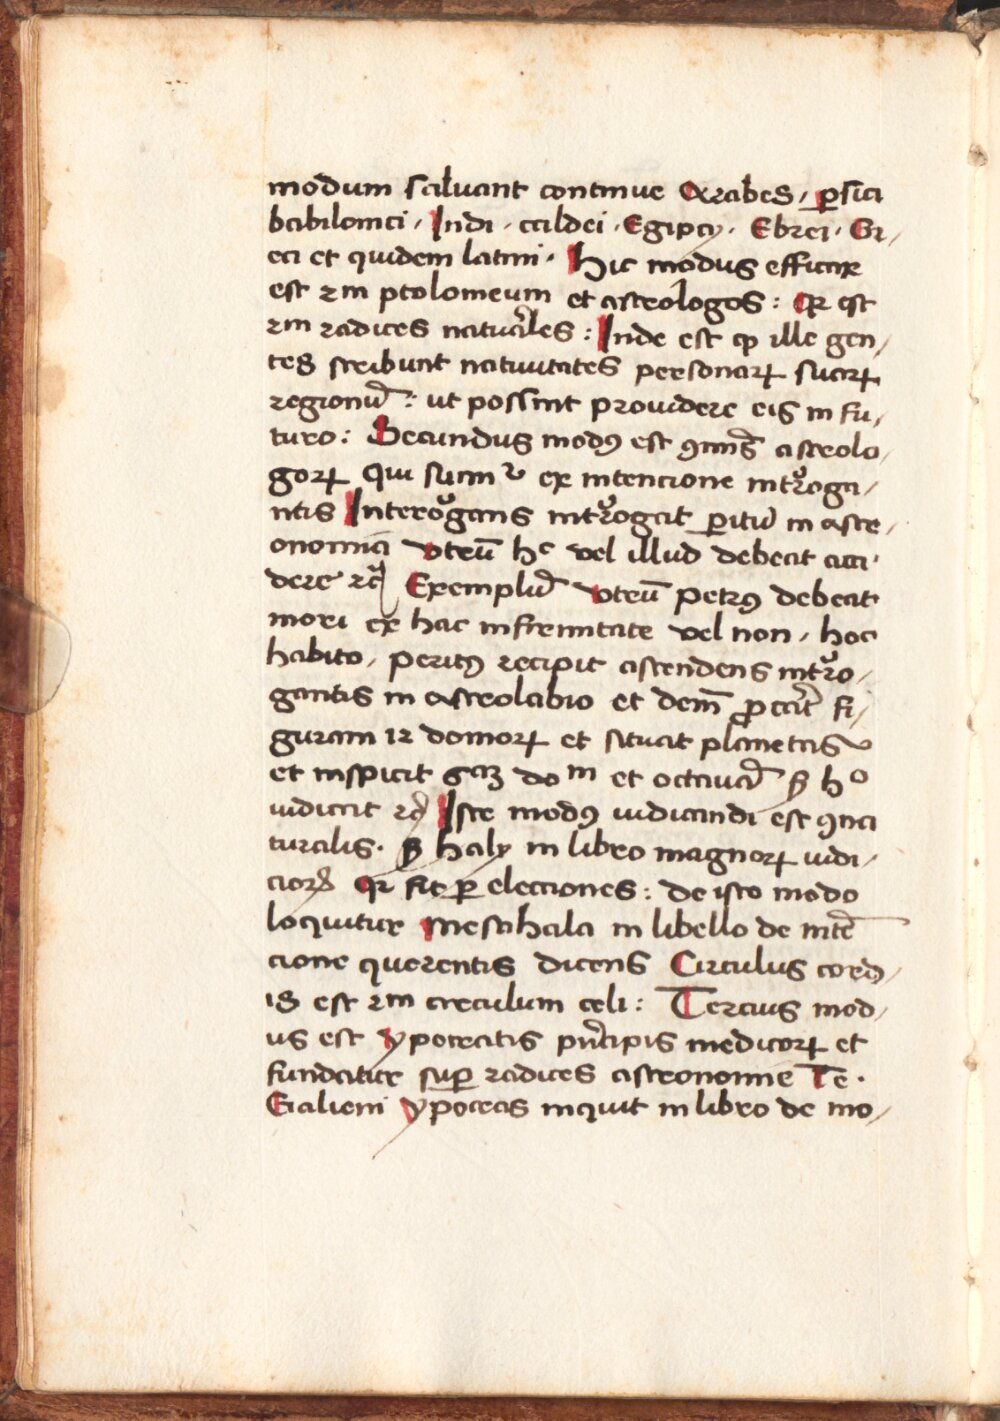 modum saluant continue Arabes, ꝑsici
babilonici, Indi · caldei · Egipcij · Ebrei · Gr,
eci et quidem latini · Hic modus efficax
est 2m ptolomeum et astrologos : qꝛ est
2m radices natuales : Inde est ꝙ ille gen,
tes scribunt natiuitates personaꝝ suaꝝ
regionū : ut possint prouidere eis in fu,
turo : Secundus modꝯ est ꝯīs astrolo,
goꝝ Qui sumr ex intencione introga,
ntis Interogans introgat ꝑitū in astr,
onomia vtrū hc vel illud debeat acci,
dere rc Exemplū vtrū petrꝯ debeat
mori ex hac infirmitate vel non, hoc
habito, peritꝯ recipit ascendens intro,
gantis in astrolabio et dein ꝓ fi,
guram 12 domoꝝ et situat planetas
et inspicit 6am dom et octauā ho
iudicat rc Iste modꝯ iudicandi est ꝯna
turalis · haly in libro magnoꝝ iudi,
cioꝝ qꝛ fit ꝑ elecciones : de isto modo
loquitur Mesahala in libello de intē
cione querentis dicens Circulus cord,
is est 2m circulum celi : Tercius mod,
us est ypocratis pncipis medicoꝝ et
fundatur suꝑ radices astronomie Te ·
Galieni ypocras inquit in libro de mo,